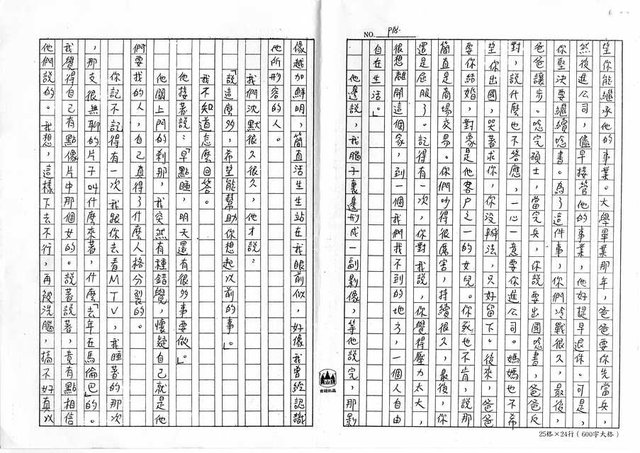 NO. P18.
望你能繼承他的事業。大學畢業那年,爸爸要你先當兵,
然後進公司,儘早接管他的事業,他好提早退休。可
你堅決要繼續唸書。為了這件事,你們冷戰很久,最後,
爸爸讓步。唸完碩士,當完兵,你說要出國唸書,爸爸反
對,說什麼也不答應,一心一意要你進公司。媽媽也不希
望你出國,哭著求你,你沒辦法,只好留下。後來,爸爸
要你結婚,對象是他客戶之一的女兒。你死也不肯,說那
簡直是商場交易。你們吵得很厲害,持續很久,最後,你
還是屈服了。記得有一次,你對我說,你覺得壓力太大,
很想離開這個家,到一個我們找不到的地方,一個人自由
自在生活。」
他邊說,我腦子裏邊形成一副影像,等他說完,那影
像越加鮮明,簡直活生生站在我眼前似,好像我曾經認識
他所形容的人。
我們沈默很久很久,他才說:
「說這麼多,希望能幫助你想起以前的事。」
我不知道怎麼回答。
他接著說:「早點睡,明天還有很多事要做。」
他關上門的剎那,我突然有種錯覺,懷疑自己就是他
們要找的人,自己真得了什麼人格分裂的。
你記不記得有一次我跟你去看MTV,我睡著的那次
,那支很無聊的片子叫什麼來著,什麼『去年在馬倫巴』的。
我覺得自己有點像片中那個女的。說著說著,竟有點相信
他們說的。我想,這樣下去不行,再被洗腦,搞不好真以
25格×24行(600字大格)